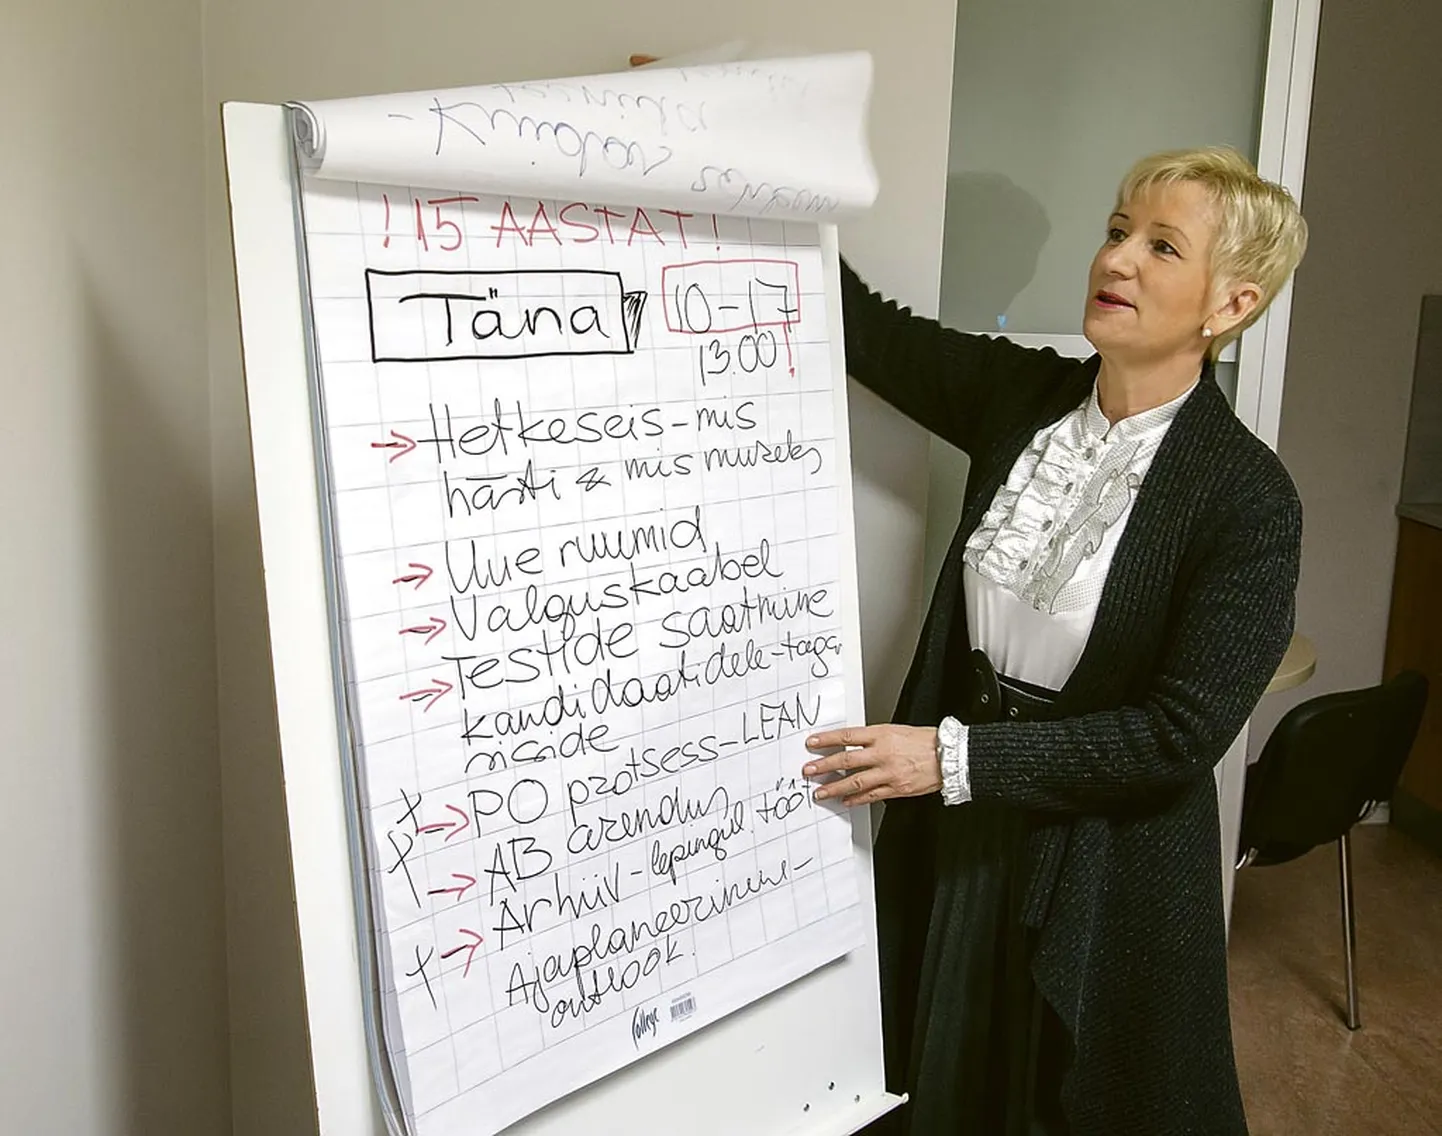 - Kuidas
! 15 AASTAT !
Täna 10-17
13.00 !
→ Hetkeseis - mis
hästi & mis museks
→ Uue ruumid
→ Valguskaabel
→ Testide saatmine
kandidaatidele - taga
riside
→ PO protsess - LEAN
→ AB arendus
→ Arhiiv - lepingud, tööt
Ajaplaneerimine -
outlook.
College